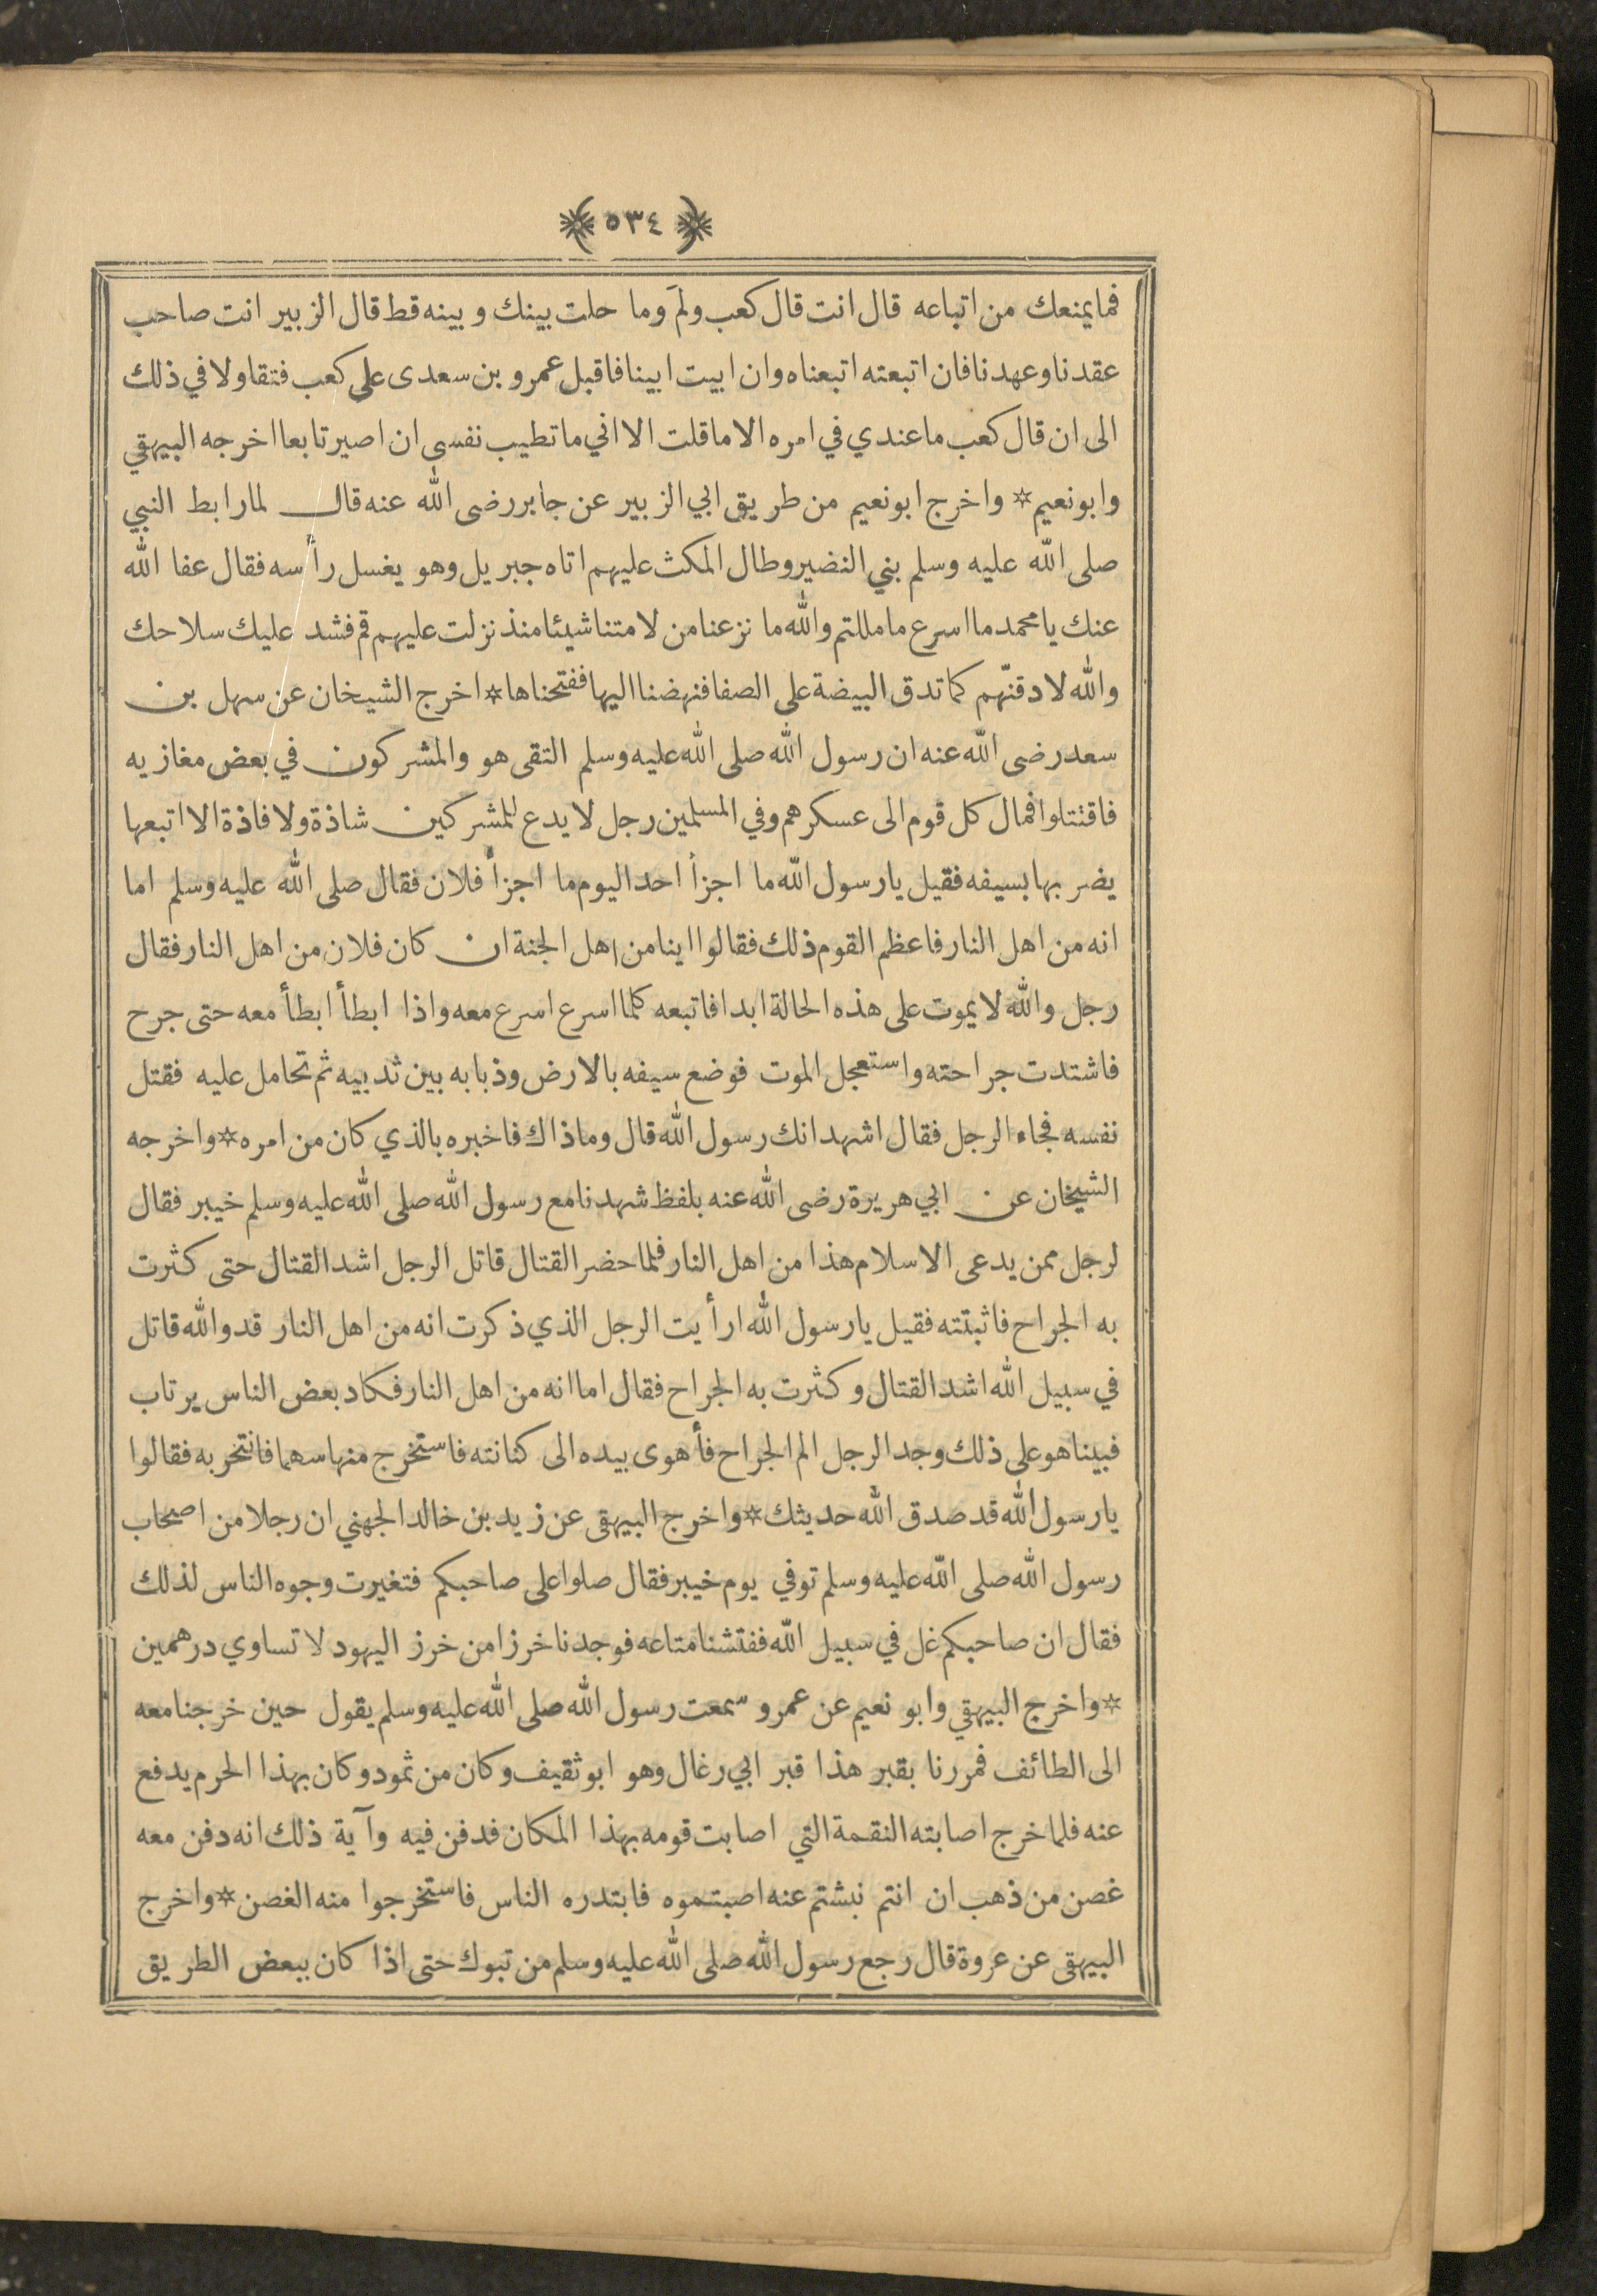 ﴿ ٥٣٤ ﴾
فما يمنعك من اتباعه قال انت قال كعب ولمَ وما حلت بينك وبينه قط قال الزبير انت صاحب
عقدنا وعهدنا فان اتبعته اتبعناه وان ابيت ابينا فاقبل عمرو بن سعدى على كعب فتقاولا في ذلك
الى ان قال كعب ما عندي في امره الا ما قلت الا اني ما تطيب نفسى ان اصير تابعا اخرجه البيهقي
وابو نعيم * واخرج ابو نعيم من طريق ابي الزبير عن جابر رضى الله عنه قال لما رابط النبي
صلى الله عليه وسلم بني النضير وطال المكث عليهم اتاه جبريل وهو يغسل رأسه فقال عفا الله
عنك يا محمد ما اسرع ما مللتم والله ما نزعنا من لامتنا شيئا منذ نزلت عليهم قم فشد عليك سلاحك
والله لادقنّهم كما تدق البيضة على الصفا فنهضنا اليها ففتحناها * اخرج الشيخان عن سهل بن
سعد رضى الله عنه ان رسول الله صلى الله عليه وسلم التقى هو والمشركون في بعض مغازيه
فاقتتلوا فمال كل قوم الى عسكرهم وفي المسلمين رجل لا يدع للمشركين شاذة ولا فاذة الا اتبعها
يضربها بسيفه فقيل يا رسول الله ما اجزأ احد اليوم ما اجزأ فلان فقال صلى الله عليه وسلم اما
انه من اهل النار فاعظم القوم ذلك فقالوا اينا من اهل الجنة ان كان فلان من اهل النار فقال
رجل والله لا يموت على هذه الحالة ابدا فاتبعه كلما اسرع اسرع معه واذا ابطأ ابطأ معه حتى جرح
فاشتدت جراحته واستعجل الموت فوضع سيفه بالارض وذبابه بين ثدييه ثم تحامل عليه فقتل
نفسه فجاء الرجل فقال اشهد انك رسول الله قال وما ذاك فاخبره بالذي كان من امره * واخرجه
الشيخان عن ابي هريرة رضى الله عنه بلفظ شهدنا مع رسول الله صلى الله عليه وسلم خيبر فقال
لرجل ممن يدعى الاسلام هذا من اهل النار فلما حضر القتال قاتل الرجل اشد القتال حتى كثرت
به الجراح فاثبتته فقيل يا رسول الله ارأيت الرجل الذي ذكرت انه من اهل النار قد والله قاتل
في سبيل الله اشد القتال وكثرت به الجراح فقال اما انه من اهل النار فكاد بعض الناس يرتاب
فبينا هو على ذلك وجد الرجل الم الجراح فأهوى بيده الى كنانته فاستخرج منها سهما فانتحر به فقالوا
يا رسول الله قد صدق الله حديثك * واخرج البيهقى عن زيد بن خالد الجهني ان رجلا من اصحاب
رسول الله صلى الله عليه وسلم توفي يوم خيبر فقال صلوا على صاحبكم فتغيرت وجوه الناس لذلك
فقال ان صاحبكم غل في سبيل الله ففتشنا متاعه فوجدنا خرزا من خرز اليهود لا تساوي درهمين
* واخرج البيهقي وابو نعيم عن عمرو سمعت رسول الله صلى الله عليه وسلم يقول حين خرجنا معه
الى الطائف فمررنا بقبر هذا قبر ابي رغال وهو ابو ثقيف وكان من ثمود وكان بهذا الحرم يدفع
عنه فلما خرج اصابته النقمة التي اصابت قومه بهذا المكان فدفن فيه وآية ذلك انه دفن معه
غصن من ذهب ان انتم نبشتم عنه اصبتموه فابتدره الناس فاستخرجوا منه الغصن * واخرج
البيهقى عن عروة قال رجع رسول الله صلى الله عليه وسلم من تبوك حتى اذا كان ببعض الطريق